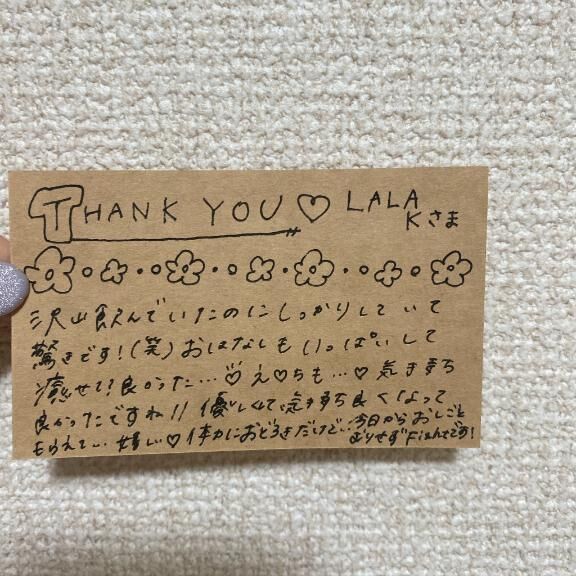 THANK YOU ♡ LALA
Kさま
沢山飲んでいたのにしっかりしていて
驚きです!(笑)おはなしもいっぱいして
癒せて?良かった…♡え♡ちも…♡気持ち
良かったですね!!優しくて気持ち良くなって
もらえて…嬉しい♡体力におどろきだけど…今日からおしごと
むりせずFightです!